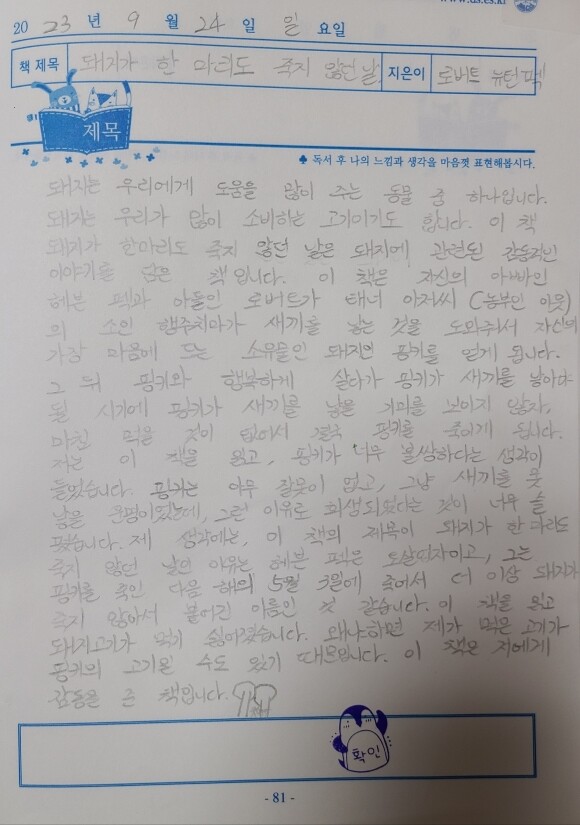 www.ds.es.kr
2023 년 9 월 24 일 일 요일
책 제목 돼지가 한 마리도 죽지 않던 날 지은이 로버트 뉴턴 펙
제목
♣ 독서 후 나의 느낌과 생각을 마음껏 표현해봅시다.
돼지는 우리에게 도움을 많이 주는 동물 중 하나입니다.
돼지는 우리가 많이 소비하는 고기이기도 합니다. 이 책
돼지가 한마리도 죽지 않던 날은 돼지에 관련된 감동적인
이야기를 담은 책입니다. 이 책은 자신의 아빠인
헤븐 펙과 아들인 로버트가 태너 아저씨 (농부인 이웃)
의 소인 행주치마가 새끼를 낳는 것을 도와줘서 자신의
가장 마음에 드는 소유물인 돼지인 핑키를 얻게 됩니다.
그 뒤 핑키와 행복하게 살다가 핑키가 새끼를 낳아야
될 시기에 핑키가 새끼를 낳을 기미를 보이지 않자,
마침 먹을 것이 없어서 결국 핑키를 죽이게 됩니다.
저는 이 책을 읽고, 핑키가 너무 불쌍하다는 생각이
들었습니다. 핑키는 아무 잘못이 없고, 그냥 새끼를 못
낳을 운명이었는데, 그런 이유로 희생되었다는 것이 너무 슬
펐습니다. 제 생각에는, 이 책의 제목이 돼지가 한 마리도
죽지 않던 날인 이유는 헤븐 펙은 도살업자이고, 그는
핑키를 죽인 다음 해의 5월 3일에 죽어서 더 이상 돼지가
죽지 않아서 붙여진 이름인 것 같습니다. 이 책을 읽고
돼지고기가 먹기 싫어졌습니다. 왜냐하면 제가 먹은 고기가
핑키의 고기일 수도 있기 때문입니다. 이 책은 저에게
감동을 준 책입니다.
확인
- 81 -